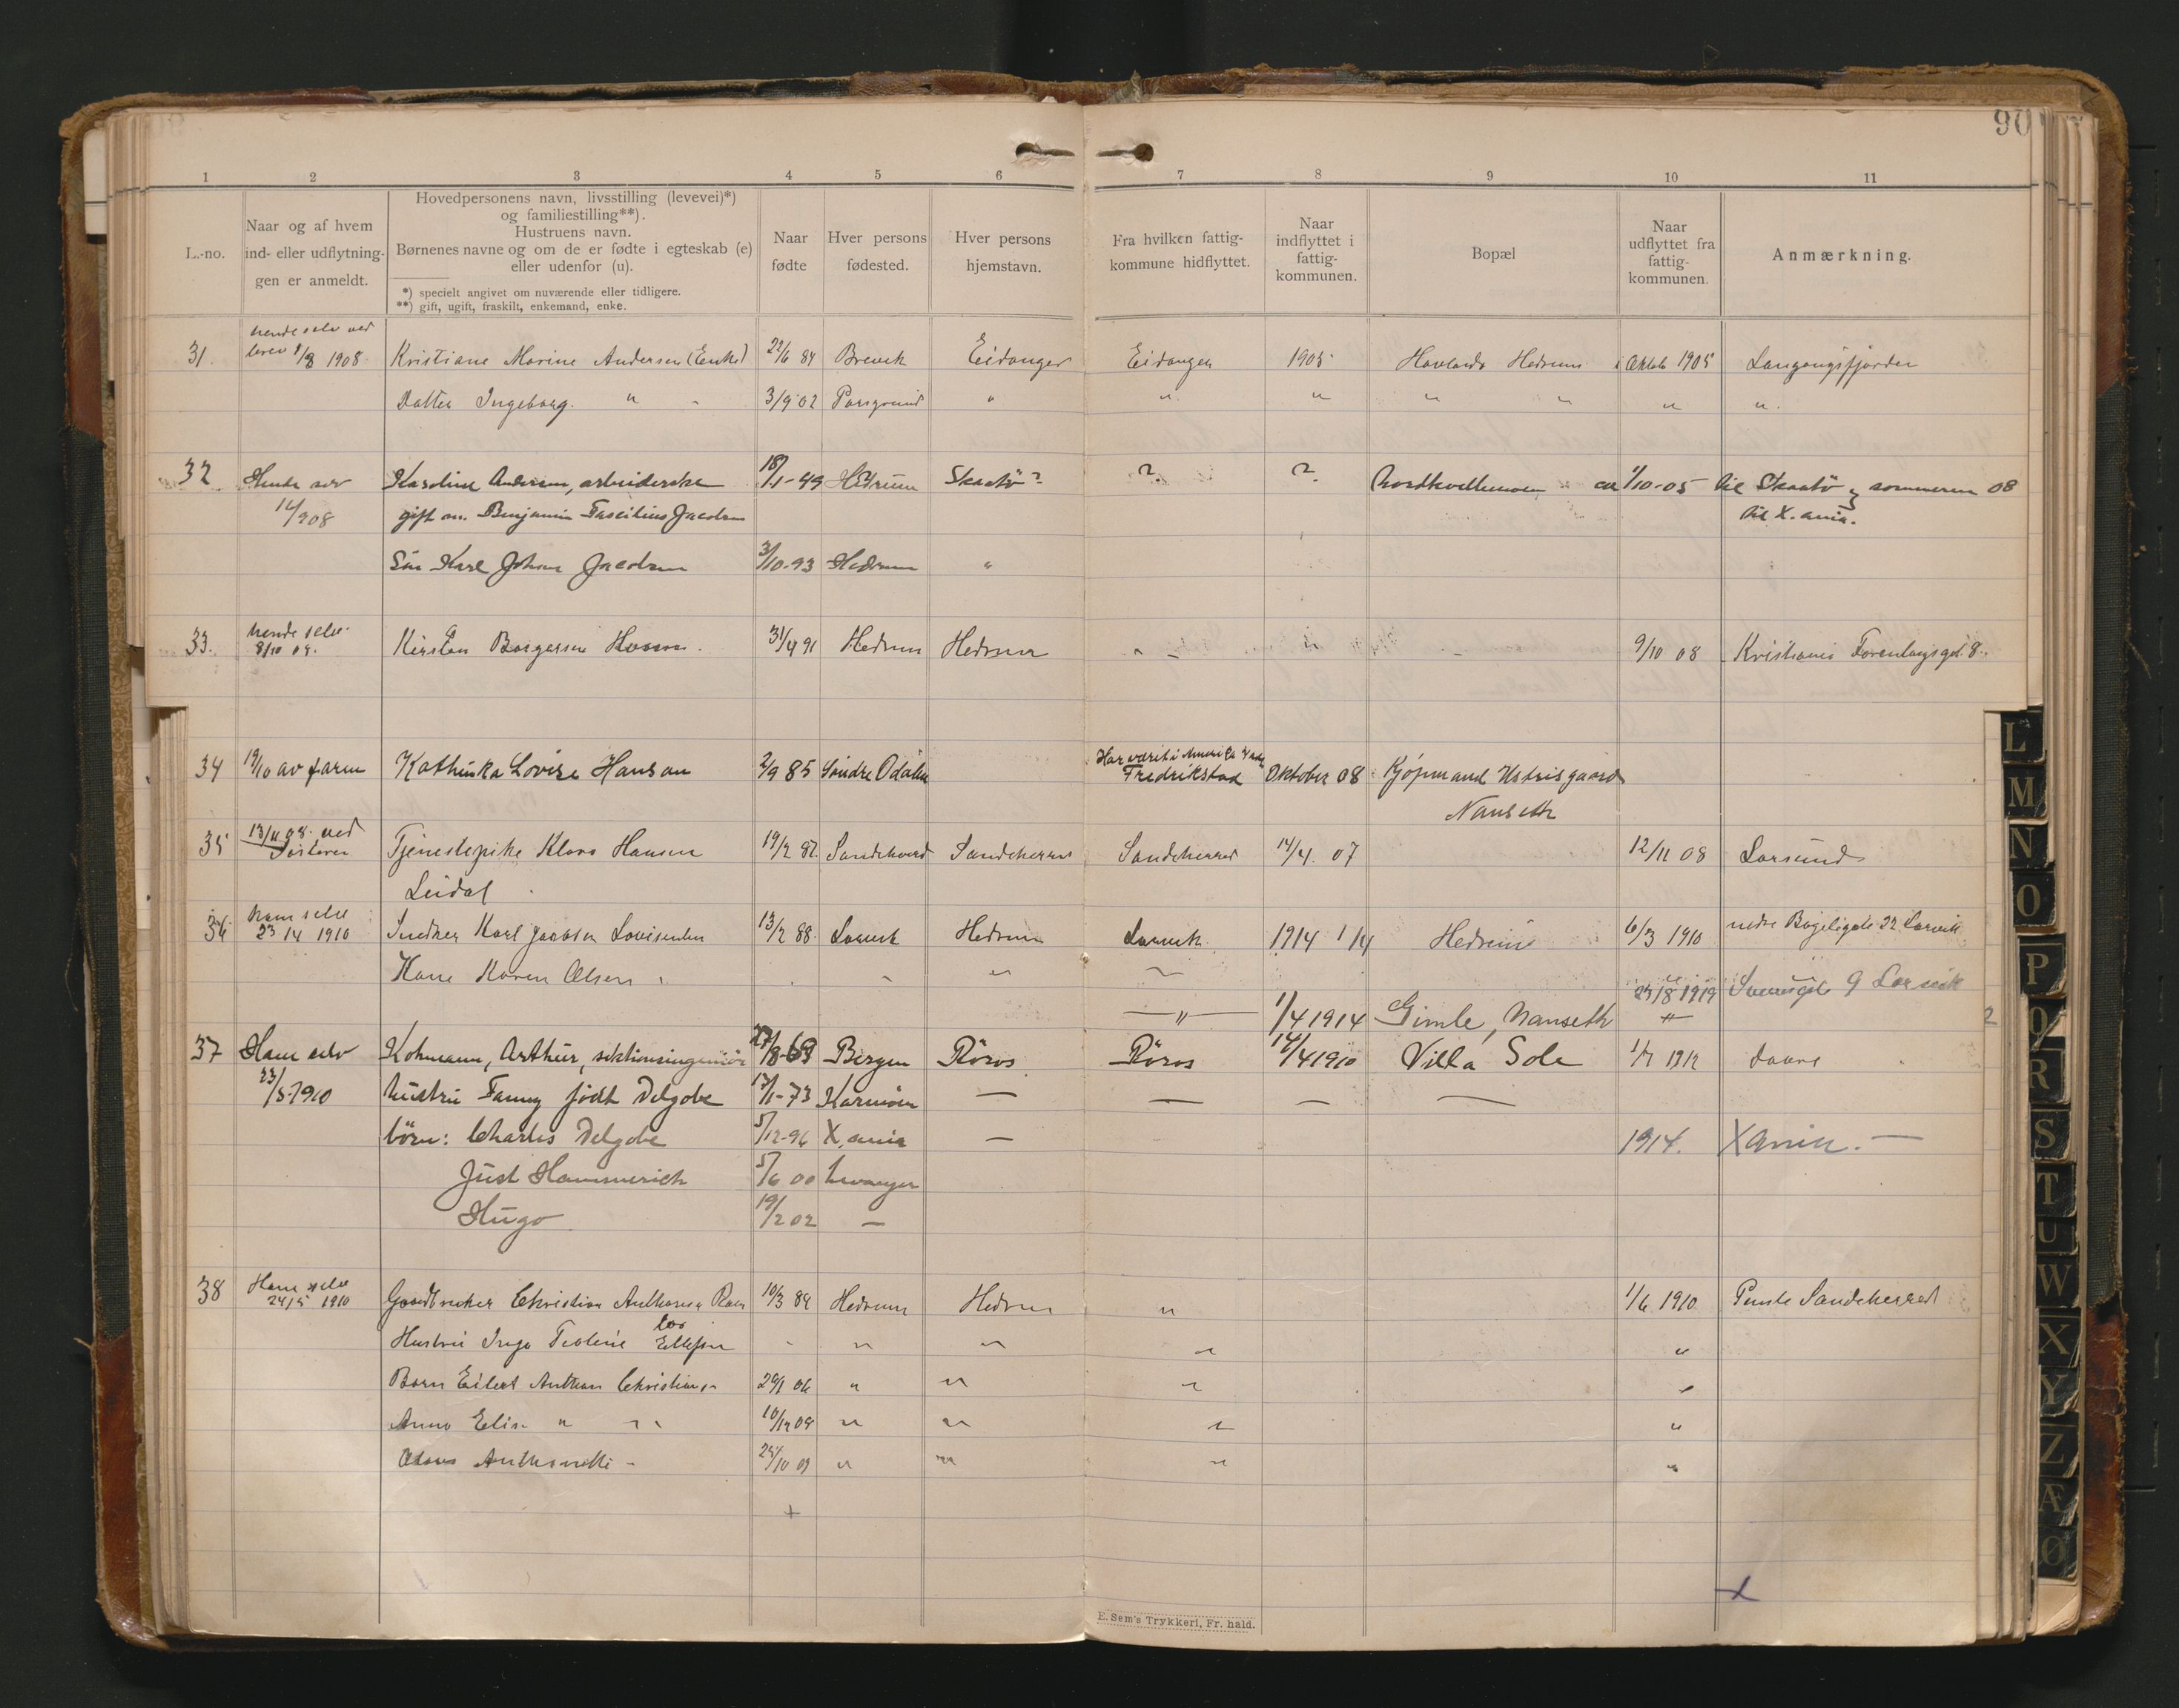 90
1 2 3 4 5 6 7 8 9 10 11
L.-no.
Naar og af hvem
ind- eller udflytnin-
gen er anmeldt.
Hovedpersonens navn, livsstilling (levevei)*)
og familiestilling**).
Hustruens navn.
Børnenes navne og om de er fødte i egteskab (e)
eller udenfor (u).
*) specielt angivet om nuværende eller tidligere.
**) gift, ugift, fraskilt, enkemand, enke.
Naar
fødte
Hver persons
fødested.
Hver persons
hjemstavn.
Fra hvilken fattig-
kommune hidflyttet.
Naar
indflyttet i
fattig-
kommunen.
Bopæl
Naar
udflyttet fra
fattig-
kommunen.
Anmærkning.
hende selv ved
31. brev 1/8 1908 Kristiane Marine Andersen (Enke) 22/6 84 Brevik Eidanger Eidanger 1905 Hovland Hedrum Oktob 1905 Langangsfjorden
Datter Ingeborg. " - 3/9 02 Porsgrund " " " " " " "
32 Hende selv Karoline Andersen, arbeiderske 18/1-49 Hedrum Skaatö? ? ? ca 1/10-05 til Skaatö og sommeren 08
14/9 08 gift m. Benjamin Jacobsen til X.ania.
Sön Karl Johan Jacobsen 3/10-93 Hedrum "
33. hende selv Borgersen 31/4 91 Hedrum Hedrum " - " - 9/10 08 Kristiania 8.
8/10 09.
Har værit i Amerika
34 19/10 av faren Kathinka Lovise Hansen 2/9 85 Söndre Odalen Fredrikstad Oktober 08 Kjöpmand
Nanseth
35 13/11 08. ved Tjenestepike Klara Hansen 19/2 87. Sandeherred Sandeherred Sandeherred 14/4. 07 12/11 08 Larsund
Söstern
Leidal
36 ham selv Snedker Karl Jacobsen 13/2 88. Larvik Hedrum Larvik 1914 1/4 Hedrum 6/3 1910 nedre Bögeligate 22 Larvik
23/4 1910
Kone Karen Olsen 23/8 1919 9 Larvik
— " — 1/4 1914 Gimle, Nanseth "
37 Ham selv Kohmann, Arthur, sektionsingeniör 27/8-69 Bergen Röros Röros 14/4 1910 Villa Sole 1/7 1912
23/5-1910 hustru Fanny födt Delgobe 17/1-73 Karmöen — — — —
börn: Charles Delgobe 5/12-96 X.ania — 1914. Xania. —
Just Hammerich 5/6 00 Levanger
Hugo 19/2 02 —
38 Ham selv Gaardbruker Christian Anthonsen 10/3 84 Hedrum Hedrum " 1/6 1910 Sandeherred
24/5 1910
Hustru Inga Ellefsen - " " " "
Barn Eilert Anthon Christians- 26/1 06 " " " "
Anna Elise " " 10/12 08 " " " "
- 25/10 09 " " " "
+
E. Sem's Trykkeri, Fr. hald.
x
L
M
N
O
P
Q
R
S
T
U
W
X
Y
Z
Æ
Ø